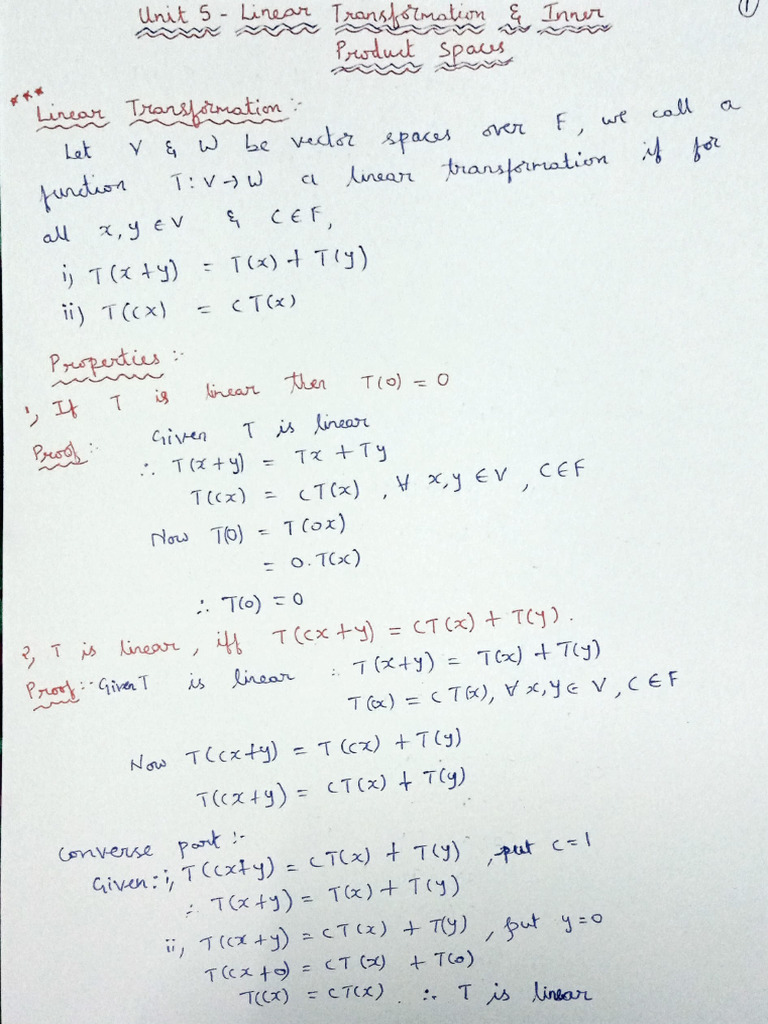 ①
Unit 5 - Linear Transformation & Inner
Product Spaces
*** Linear Transformation :-
Let V & W be vector spaces over F, we call a
function T: V → W a linear transformation if for
all x, y ∈ V & C ∈ F,
i) T(x+y) = T(x) + T(y)
ii) T(cx) = cT(x)
Properties :-
1, If T is linear then T(0) = 0
Proof :- Given T is linear
∴ T(x+y) = Tx + Ty
T(cx) = cT(x), ∀ x,y ∈ V, C ∈ F
Now T(0) = T(0x)
= 0.T(x)
∴ T(0) = 0
2, T is linear, iff T(cx+y) = CT(x) + T(y).
Proof :- Given T is linear ∴ T(x+y) = T(x) + T(y)
T(cx) = cT(x), ∀ x,y ∈ V, C ∈ F
Now T(cx+y) = T(cx) + T(y)
T(cx+y) = cT(x) + T(y)
Converse part :-
Given: i, T(cx+y) = cT(x) + T(y), put c=1
∴ T(x+y) = T(x) + T(y)
ii, T(cx+y) = cT(x) + T(y), put y=0
T(cx+0) = cT(x) + T(0)
T(cx) = cT(x). ∴ T is linear